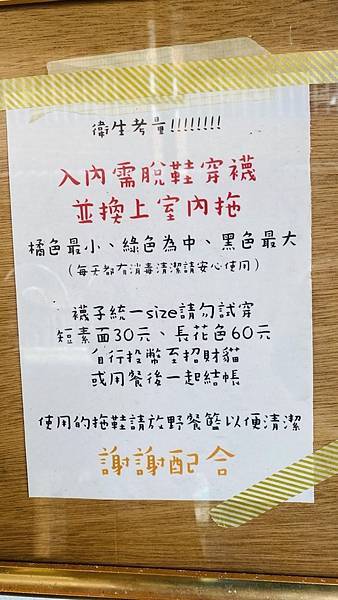 衛生考量!!!!!!!!
入內需脫鞋穿襪
並換上室內拖
橘色最小、綠色為中、黑色最大
（每天都有消毒清潔請安心使用）
襪子統一size請勿試穿
短素面30元、長花色60元
自行投幣至招財貓
或用餐後一起結帳
使用的拖鞋請放野餐籃以便清潔
謝謝配合